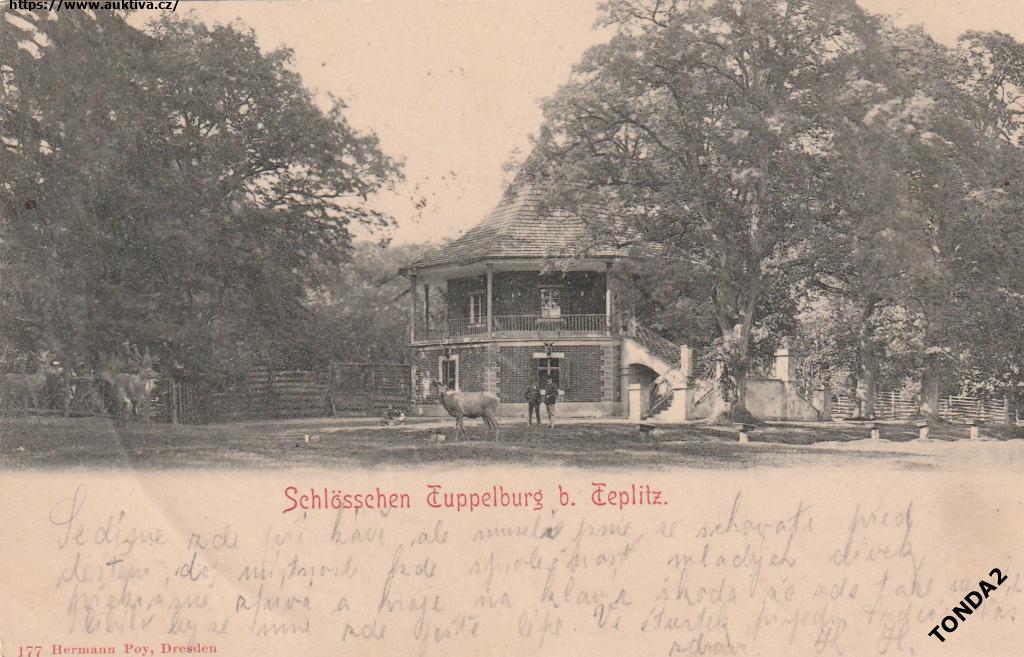 https://www.auktiva.cz/
Schlösschen Tuppelburg b. Teplitz.
Sedíme zde při kávě, ale museli jsme se schovati před
deštěm do místnosti kde společnost mladých dívek
překrásně zpívá a hraje na klavír škoda že zde také
zde ještě lépe. Ve čtvrtek přijedu
zdraví H. H.
177 Hermann Poy, Dresden
TONDA2